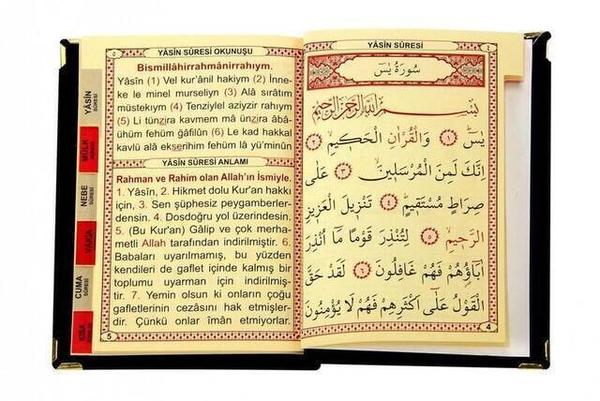 YÂSİN SÛRESİ
٤
سورة يس
بِسْمِ اللهِ الرَّحْمٰنِ الرَّحِيمِ
يٰسٓ ﴿١﴾ وَالْقُرْاٰنِ الْحَكِيمِ ﴿٢﴾
اِنَّكَ لَمِنَ الْمُرْسَلِينَ ﴿٣﴾ عَلٰى
صِرَاطٍ مُسْتَقِيمٍ ﴿٤﴾ تَنْزِيلَ الْعَزِيزِ
الرَّحِيمِ ﴿٥﴾ لِتُنْذِرَ قَوْمًا مَٓا اُنْذِرَ
اٰبَٓاؤُ۬هُمْ فَهُمْ غَافِلُونَ ﴿٦﴾ لَقَدْ حَقَّ
الْقَوْلُ عَلٰٓى اَكْثَرِهِمْ فَهُمْ لَا يُؤْمِنُونَ
4
٥
YÂSİN SÛRESİ OKUNUŞU
Bismillâhirrahmânirrahıym.
Yâsîn (1) Vel kur'ânil hakiym (2) İnne-
ke le minel murseliyn (3) Alâ sırâtım
müstekıym (4) Tenziylel aziyzir rahıym
(5) Li tünzira kavmem mâ ünzira âbâ-
ühüm fehüm ğâfilûn (6) Le kad hakkal
kavlü alâ ekserihim fehüm lâ yü'minûn
YÂSİN SÛRESİ ANLAMI
Rahman ve Rahim olan Allah'ın İsmiyle.
1. Yâsîn, 2. Hikmet dolu Kur'an hakkı
için, 3. Sen şüphesiz peygamberler-
densin. 4. Dosdoğru yol üzerindesin.
5. (Bu Kur'an) Gâlip ve çok merha-
metli Allah tarafından indirilmiştir. 6.
Babaları uyarılmamış, bu yüzden
kendileri de gaflet içinde kalmış bir
toplumu uyarman için indirilmiş-
tir. 7. Yemin olsun ki onların çoğu
gafletlerinin cezasını hak etmişler-
dir. Çünkü onlar îmân etmiyorlar.
5
YÂSİN
SÛRESİ
MÜLK
SÛRESİ
NEBE
SÛRESİ
VAKIA
SÛRESİ
CUMA
SÛRESİ